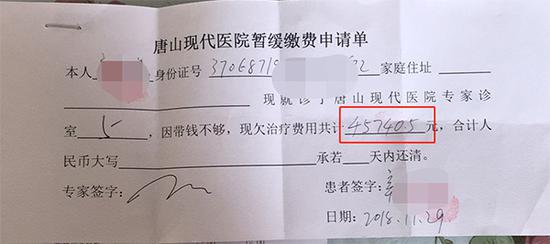 唐山现代医院暂缓缴费申请单
本人 身份证号 37068719 22 家庭住址
现就诊于唐山现代医院专家诊
室 5 ，因带钱不够，现欠治疗费用共计 457405 元，合计人
民币大写 承若 天内还清。
专家签字： 患者签字：
日期：2018.11.29